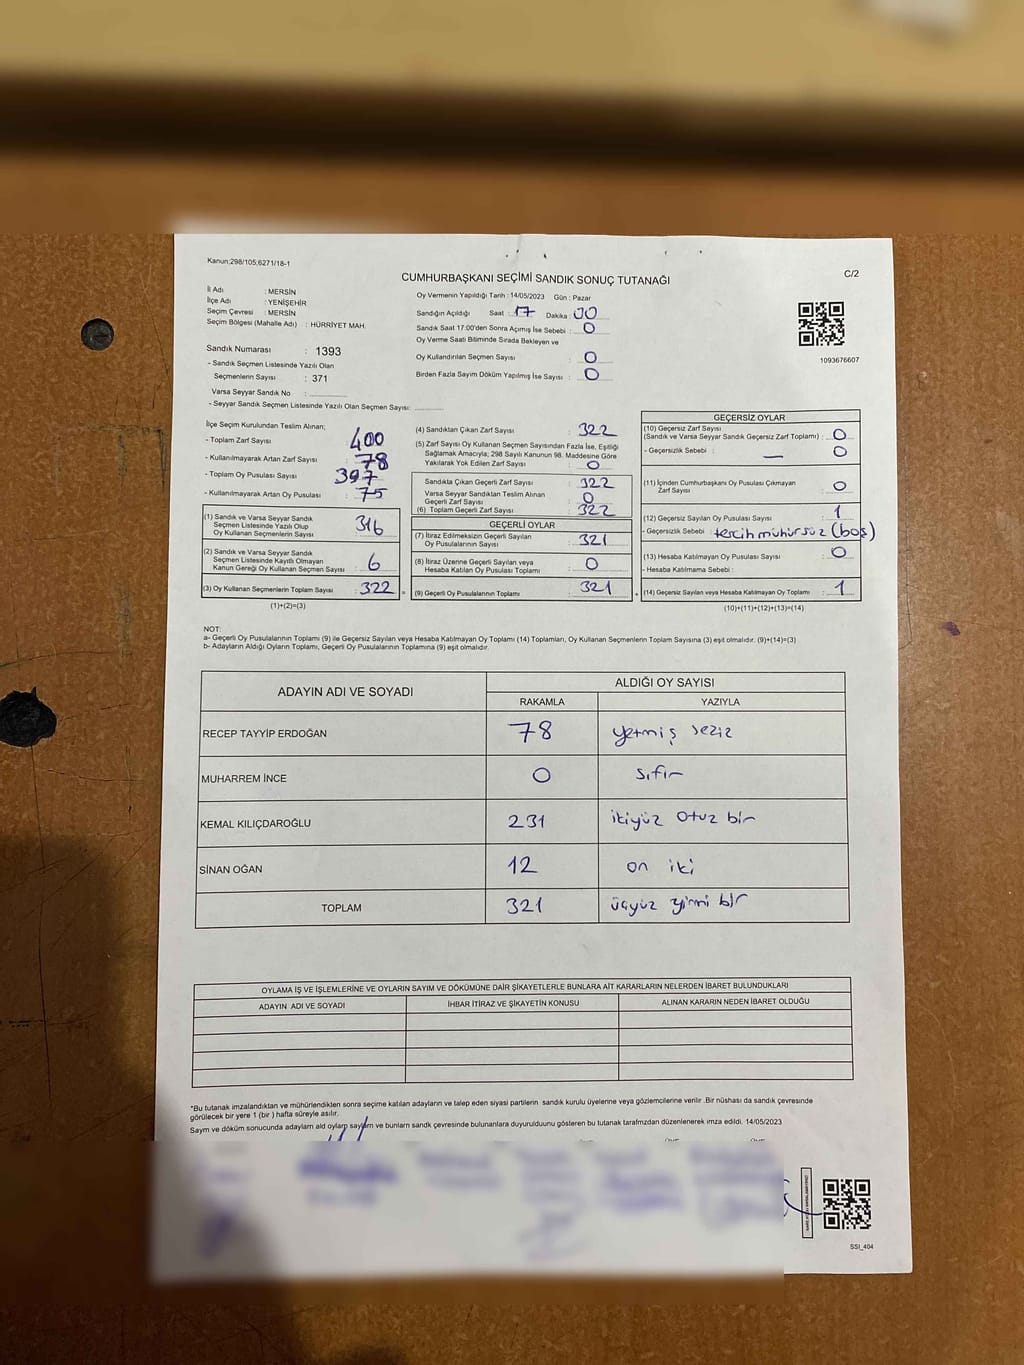 Kanun:298/105;6271/18-1
CUMHURBAŞKANI SEÇİMİ SANDIK SONUÇ TUTANAĞI
C/2
İl Adı : MERSİN
İlçe Adı : YENİŞEHİR
Seçim Çevresi : MERSİN
Seçim Bölgesi (Mahalle Adı) : HÜRRİYET MAH.
Sandık Numarası : 1393
- Sandık Seçmen Listesinde Yazılı Olan
Seçmenlerin Sayısı : 371
Varsa Seyyar Sandık No :
- Seyyar Sandık Seçmen Listesinde Yazılı Olan Seçmen Sayısı:
Oy Vermenin Yapıldığı Tarih : 14/05/2023 Gün : Pazar
Sandığın Açıldığı Saat : 17 Dakika : 00
Sandık Saat 17.00'den Sonra Açımış İse Sebebi : 0
Oy Verme Saati Bitiminde Sırada Bekleyen ve
Oy Kullandırılan Seçmen Sayısı : 0
Birden Fazla Sayım Döküm Yapılmış İse Sayısı : 0
1093676607
İlçe Seçim Kurulundan Teslim Alınan;
- Toplam Zarf Sayısı : 400
- Kullanılmayarak Artan Zarf Sayısı : 78
- Toplam Oy Pusulası Sayısı : 397
- Kullanılmayarak Artan Oy Pusulası : 75
(1) Sandık ve Varsa Seyyar Sandık
Seçmen Listesinde Yazılı Olup
Oy Kullanan Seçmenlerin Sayısı : 316
(2) Sandık ve Varsa Seyyar Sandık
Seçmen Listesinde Kayıtlı Olmayan
Kanun Gereği Oy Kullanan Seçmen Sayısı : 6
(3) Oy Kullanan Seçmenlerin Toplam Sayısı : 322
(1)+(2)=(3)
(4) Sandıktan Çıkan Zarf Sayısı : 322
(5) Zarf Sayısı Oy Kullanan Seçmen Sayısından Fazla İse, Eşitliği
Sağlamak Amacıyla; 298 Sayılı Kanunun 98. Maddesine Göre
Yakılarak Yok Edilen Zarf Sayısı : 0
Sandıkta Çıkan Geçerli Zarf Sayısı : 322
Varsa Seyyar Sandıktan Teslim Alınan
Geçerli Zarf Sayısı : 0
(6) Toplam Geçerli Zarf Sayısı : 322
GEÇERLİ OYLAR
(7) İtiraz Edilmeksizin Geçerli Sayılan
Oy Pusulalarının Sayısı : 321
(8) İtiraz Üzerine Geçerli Sayılan veya
Hesaba Katılan Oy Pusulası Toplamı : 0
(9) Geçerli Oy Pusulalarının Toplamı : 321
GEÇERSİZ OYLAR
(10) Geçersiz Zarf Sayısı
(Sandık ve Varsa Seyyar Sandık Geçersiz Zarf Toplamı) : 0
- Geçersizlik Sebebi : — 0
(11) İçinden Cumhurbaşkanı Oy Pusulası Çıkmayan
Zarf Sayısı : 0
(12) Geçersiz Sayılan Oy Pusulası Sayısı : 1
- Geçersizlik Sebebi : tercih mühürsüz (boş)
(13) Hesaba Katılmayan Oy Pusulası Sayısı : 0
- Hesaba Katılmama Sebebi :
(14) Geçersiz Sayılan veya Hesaba Katılmayan Oy Toplamı : 1
(10)+(11)+(12)+(13)=(14)
NOT:
a- Geçerli Oy Pusulalarının Toplamı (9) ile Geçersiz Sayılan veya Hesaba Katılmayan Oy Toplamı (14) Toplamları, Oy Kullanan Seçmenlerin Toplam Sayısına (3) eşit olmalıdır. (9)+(14)=(3)
b- Adayların Aldığı Oyların Toplamı, Geçerli Oy Pusulalarının Toplamına (9) eşit olmalıdır.
ADAYIN ADI VE SOYADI
ALDIĞI OY SAYISI
RAKAMLA YAZIYLA
RECEP TAYYİP ERDOĞAN 78 yetmiş seziz
MUHARREM İNCE 0 sıfır
KEMAL KILIÇDAROĞLU 231 ikiyüz otuz bir
SİNAN OĞAN 12 on iki
TOPLAM 321 üçyüz yirmi bir
OYLAMA İŞ VE İŞLEMLERİNE VE OYLARIN SAYIM VE DÖKÜMÜNE DAİR ŞİKAYETLERLE BUNLARA AİT KARARLARIN NELERDEN İBARET BULUNDUKLARI
ADAYIN ADI VE SOYADI İHBAR İTİRAZ VE ŞİKAYETİN KONUSU ALINAN KARARIN NEDEN İBARET OLDUĞU
*Bu tutanak imzalandıktan ve mühürlendikten sonra seçime katılan adayların ve talep eden siyasi partilerin sandık kurulu üyelerine veya gözlemcilerine verilir .Bir nüshası da sandık çevresinde
görülecek bir yere 1 (bir ) hafta süreyle asılır.
Sayım ve döküm sonucunda adayların aldığı oyların sayıları ve bunların sandık çevresinde bulunanlara duyurulduğunu gösteren bu tutanak tarafımızdan düzenlenerek imza edildi. 14/05/2023
SSI_404